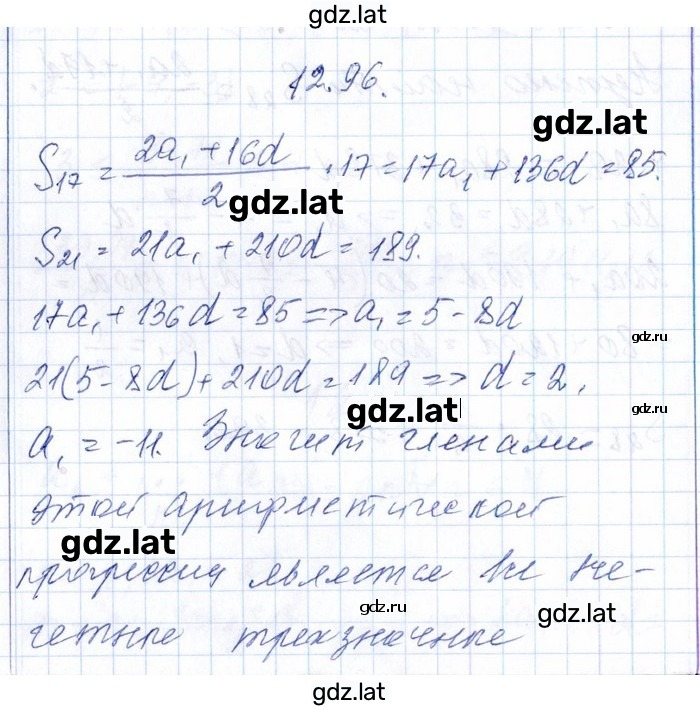 gdz.lat
12.96.
gdz.lat
S₁₇ = (2a₁ + 16d)/2 · 17 = 17a₁ + 136d = 85.
gdz.lat
S₂₁ = 21a₁ + 210d = 189.
17a₁ + 136d = 85 => a₁ = 5 - 8d
gdz.ru
21(5 - 8d) + 210d = 189 => d = 2,
gdz.lat
gdz.ru
a₁ = -11. Значит членами
этой арифметической
gdz.lat
прогрессии является все не-
gdz.ru
gdz.lat
четные трехзначные
gdz.lat